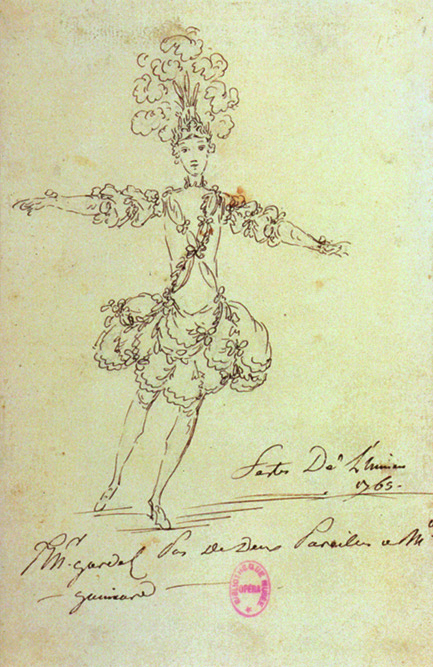 festes De L'himen
1765.
Mr. gardel Pas de Deux Pareilles a Mlle
guimard
BIBLIOTHEQUE MUSEE
OPERA